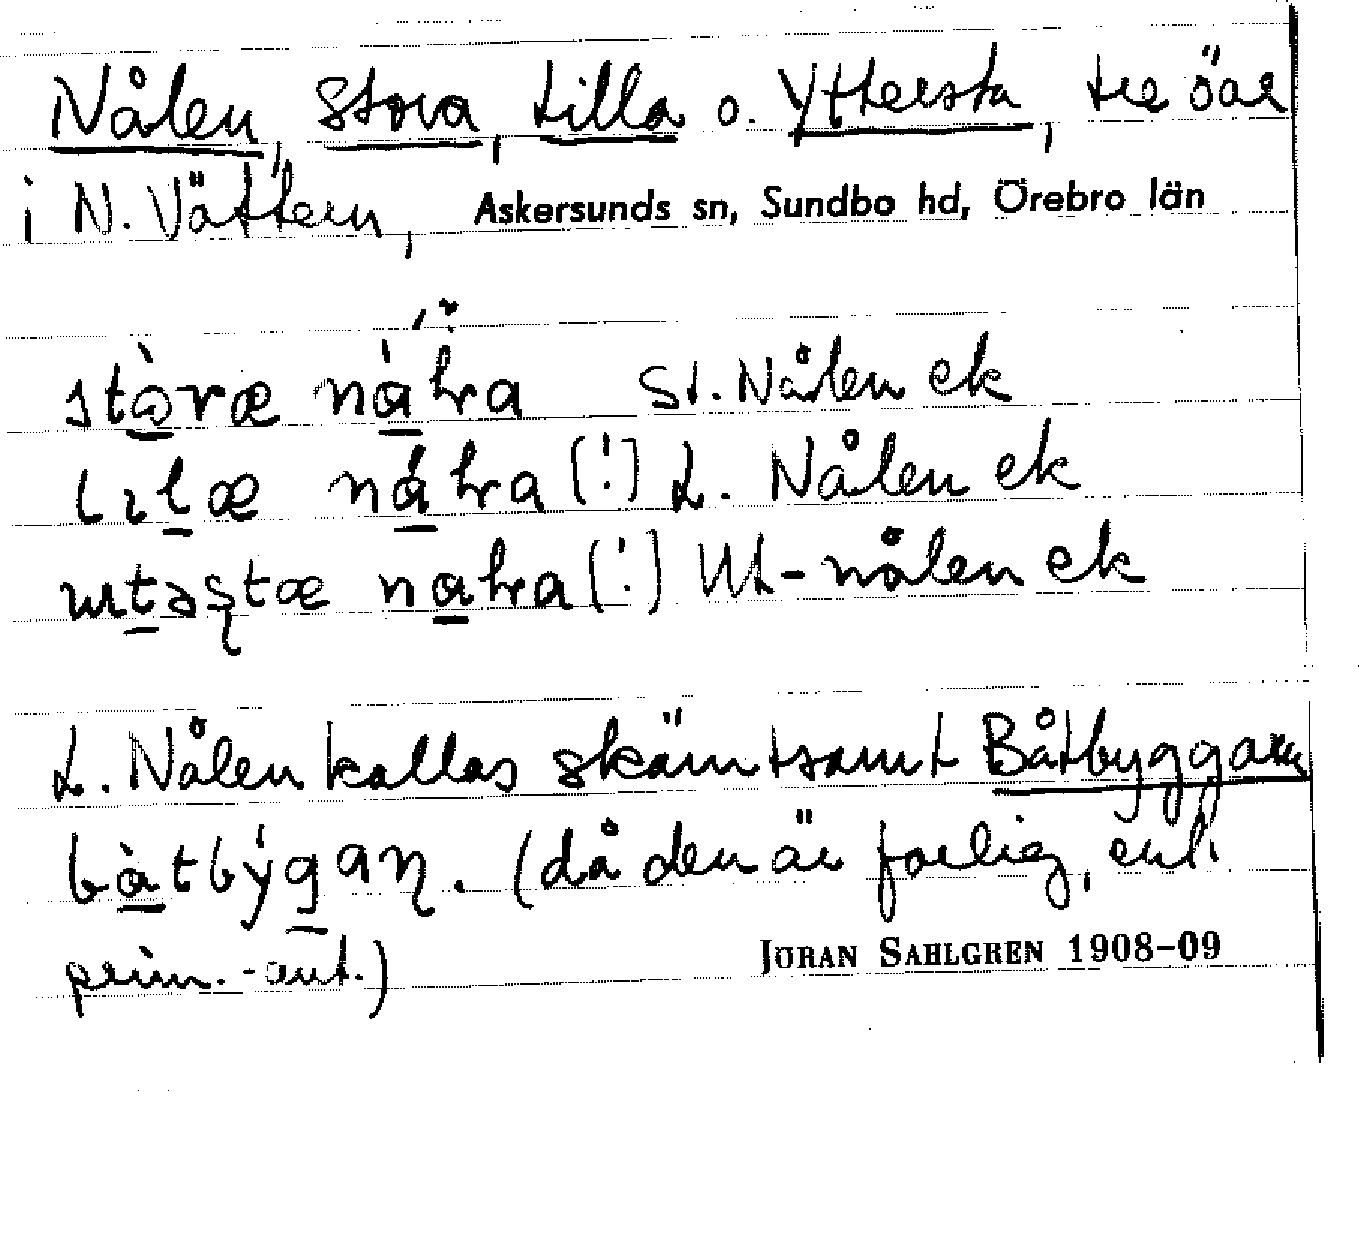 Nålen, Stora, Lilla o. Yttersta, tre öar
i N. Vättern, Askersunds sn, Sundbo hd, Örebro län
St. Nålen ek
L. Nålen ek
Ut-nålen ek
L. Nålen kallas skämtsamt Båtbyggaren
(då den är farlig, enl.
prim.-ant.) JÖRAN SAHLGREN 1908-09